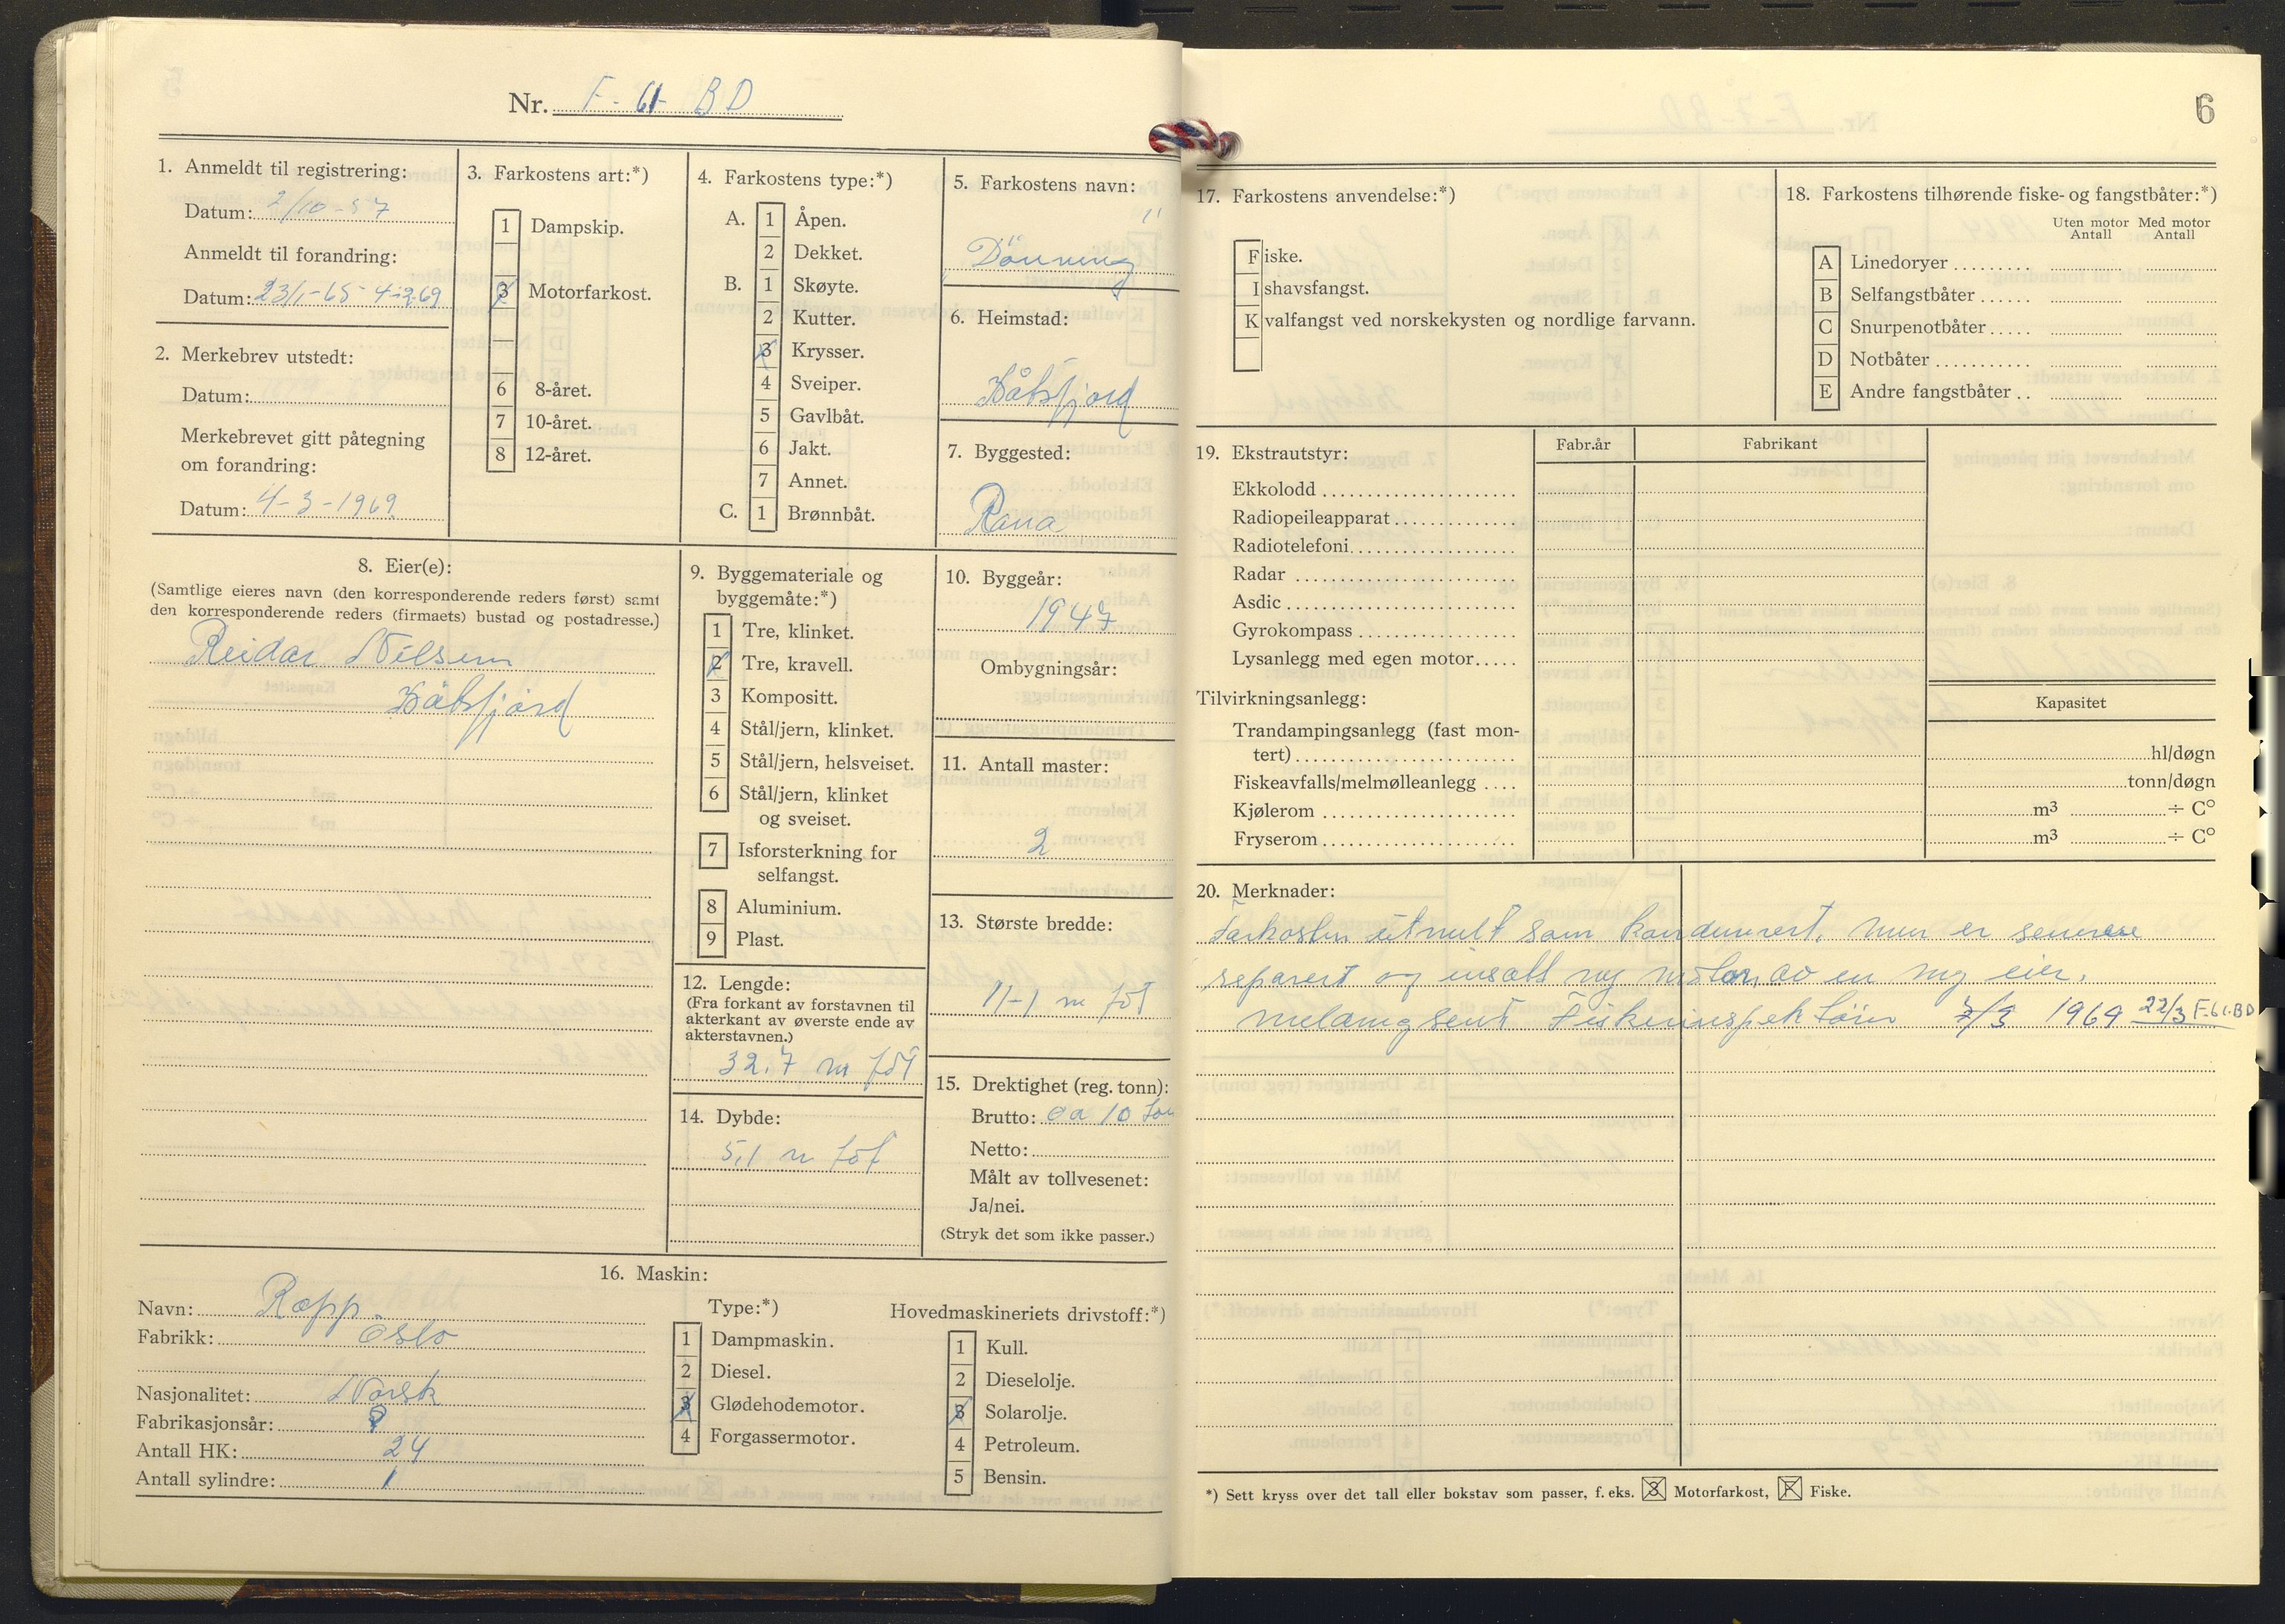 Nr. F - 61 - BD
1. Anmeldt til registrering:
Datum: 2/10-57
Anmeldt til forandring:
Datum: 23/1-65 - 4-2-69
2. Merkebrev utstedt:
Datum:
Merkebrevet gitt påtegning
om forandring:
Datum: 4-3-1969
3. Farkostens art:*)
1 Dampskip.
3 Motorfarkost.
6 8-året.
7 10-året.
8 12-året.
4. Farkostens type:*)
A. 1 Åpen.
2 Dekket.
B. 1 Skøyte.
2 Kutter.
3 Krysser.
4 Sveiper.
5 Gavlbåt.
6 Jakt.
7 Annet.
C. 1 Brønnbåt.
5. Farkostens navn:
"Dönning"
6. Heimstad:
Båtsfjord
7. Byggested:
Rana
8. Eier(e):
(Samtlige eieres navn (den korresponderende reders først) samt
den korresponderende reders (firmaets) bustad og postadresse.)
Reidar Nilsen
Båtsfjord
9. Byggemateriale og
byggemåte:*)
1 Tre, klinket.
2 Tre, kravell.
3 Kompositt.
4 Stål/jern, klinket.
5 Stål/jern, helsveiset.
6 Stål/jern, klinket
og sveiset.
7 Isforsterkning for
selfangst.
8 Aluminium.
9 Plast.
10. Byggeår:
1947
Ombygningsår:
11. Antall master:
2
12. Lengde:
(Fra forkant av forstavnen til
akterkant av øverste ende av
akterstavnen.)
32.7 m fot
13. Største bredde:
11-1 m fot
14. Dybde:
5,1 m fot
15. Drektighet (reg. tonn):
Brutto: ca 10 ton
Netto:
Målt av tollvesenet:
Ja/nei.
(Stryk det som ikke passer.)
16. Maskin:
Navn: Rapp.
Fabrikk: Oslo
Nasjonalitet: Norsk
Fabrikasjonsår: ?
Antall HK: 24
Antall sylindre: 1
Type:*)
1 Dampmaskin.
2 Diesel.
3 Glødehodemotor.
4 Forgassermotor.
Hovedmaskineriets drivstoff:*)
1 Kull.
2 Dieselolje.
3 Solarolje.
4 Petroleum.
5 Bensin.
6
17. Farkostens anvendelse:*)
Fiske.
Ishavsfangst.
Kvalfangst ved norskekysten og nordlige farvann.
18. Farkostens tilhørende fiske- og fangstbåter:*)
Uten motor Med motor
Antall Antall
A Linedoryer
B Selfangstbåter
C Snurpenotbåter
D Notbåter
E Andre fangstbåter
19. Ekstrautstyr:
Fabr.år Fabrikant
Ekkolodd
Radiopeileapparat
Radiotelefoni
Radar
Asdic
Gyrokompass
Lysanlegg med egen motor
Tilvirkningsanlegg:
Kapasitet
Trandampingsanlegg (fast mon-
tert) hl/døgn
Fiskeavfalls/melmølleanlegg tonn/døgn
Kjølerom m³ ÷ C°
Fryserom m³ ÷ C°
20. Merknader:
Farkosten utmelt som kondemnert, men er senere
reparert og insatt ny motor av en ny eier.
melding sent Fiskeriinspektören 3/3 1969 22/3 F-61-BD
*) Sett kryss over det tall eller bokstav som passer, f. eks. 3 Motorfarkost, F Fiske.